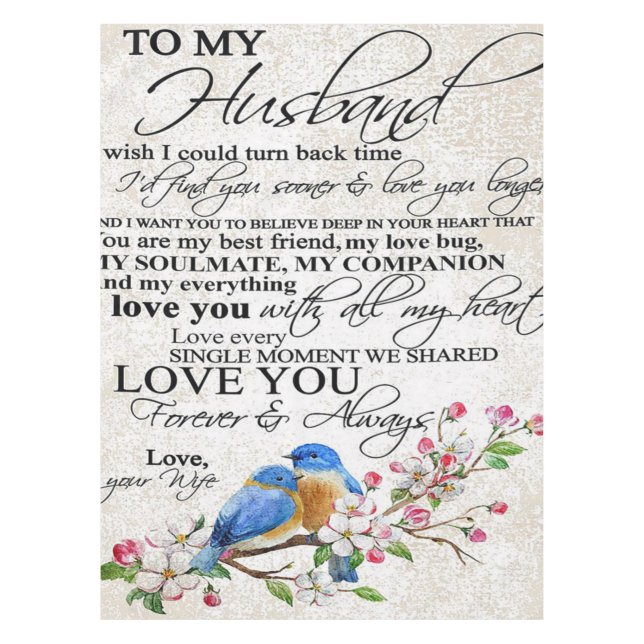 TO MY
Husband
wish I could turn back time
I'd find you sooner & love you longer
ND I WANT YOU TO BELIEVE DEEP IN YOUR HEART THAT
You are my best friend, my love bug,
MY SOULMATE, MY COMPANION
nd my everything
love you with all my heart.
Love every
SINGLE MOMENT WE SHARED
LOVE YOU
Forever & Always
Love,
your Wife